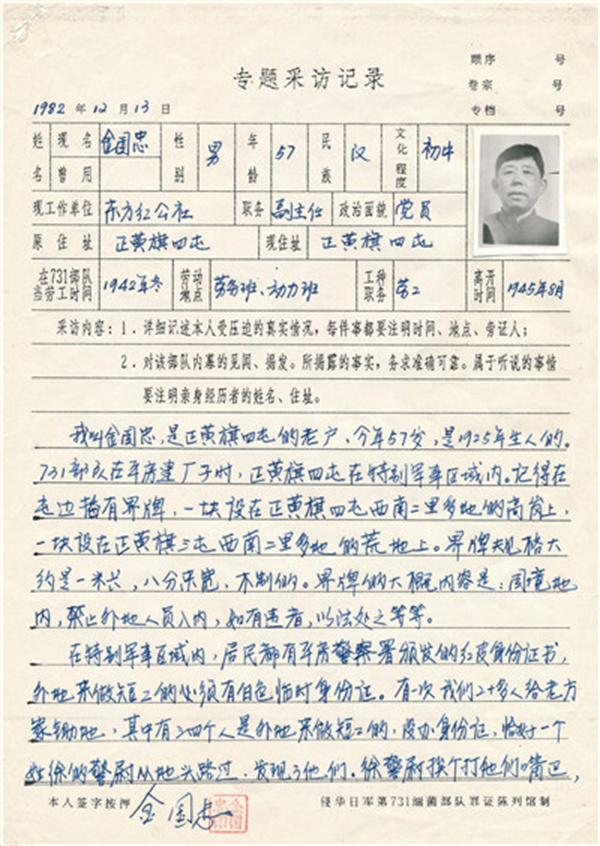 顺序 号
专题采访记录
卷宗 号
1982 年 12 月 13 日
专档 号
姓名 现名 金国忠 性别 男 年龄 57 民族 汉 文化程度 初中
曾用
现工作单位 东方红公社 职务 副主任 政治面貌 党员
原住址 正黄旗四屯 现住址 正黄旗四屯
在731部队当劳工时间 1942年冬 劳动地点 劳务班、动力班 工种职务 劳工 离开时间 1945年8月
采访内容：1．详细记述本人受压迫的真实情况，每件事都要注明时间、地点、旁证人；
2．对该部队内幕的见闻、揭发。所揭露的事实，务求准确可靠。属于听说的事情
要注明亲身经历者的姓名、住址。
我叫金国忠，是正黄旗四屯的老户，今年57岁，是1925年生人的。
731部队在平房建厂子时，正黄旗四屯在特别军事区域内。记得在
屯边插有界牌，一块设在正黄旗四屯西南二里多地的高岗上，
一块设在正黄旗三屯西南二里多地的荒地上。界牌规格大
约是一米长，八分米宽，木制的。界牌的大概内容是：周境地
内，禁止外地人员入内，如有违者，以法处之等等。
在特别军事区域内，居民都有平房警察署颁发的红皮身份证书，
外地来做短工的必须有白色临时身份证。有一次我们二十多人给老方
家锄地，其中有三四个人是外地来做短工的，没办身份证，恰好一个
姓徐的警尉从地头路过，发现了他们。徐警尉挨个打他们嘴巴，
本人签字按押 金国忠 侵华日军第731细菌部队罪证陈列馆制